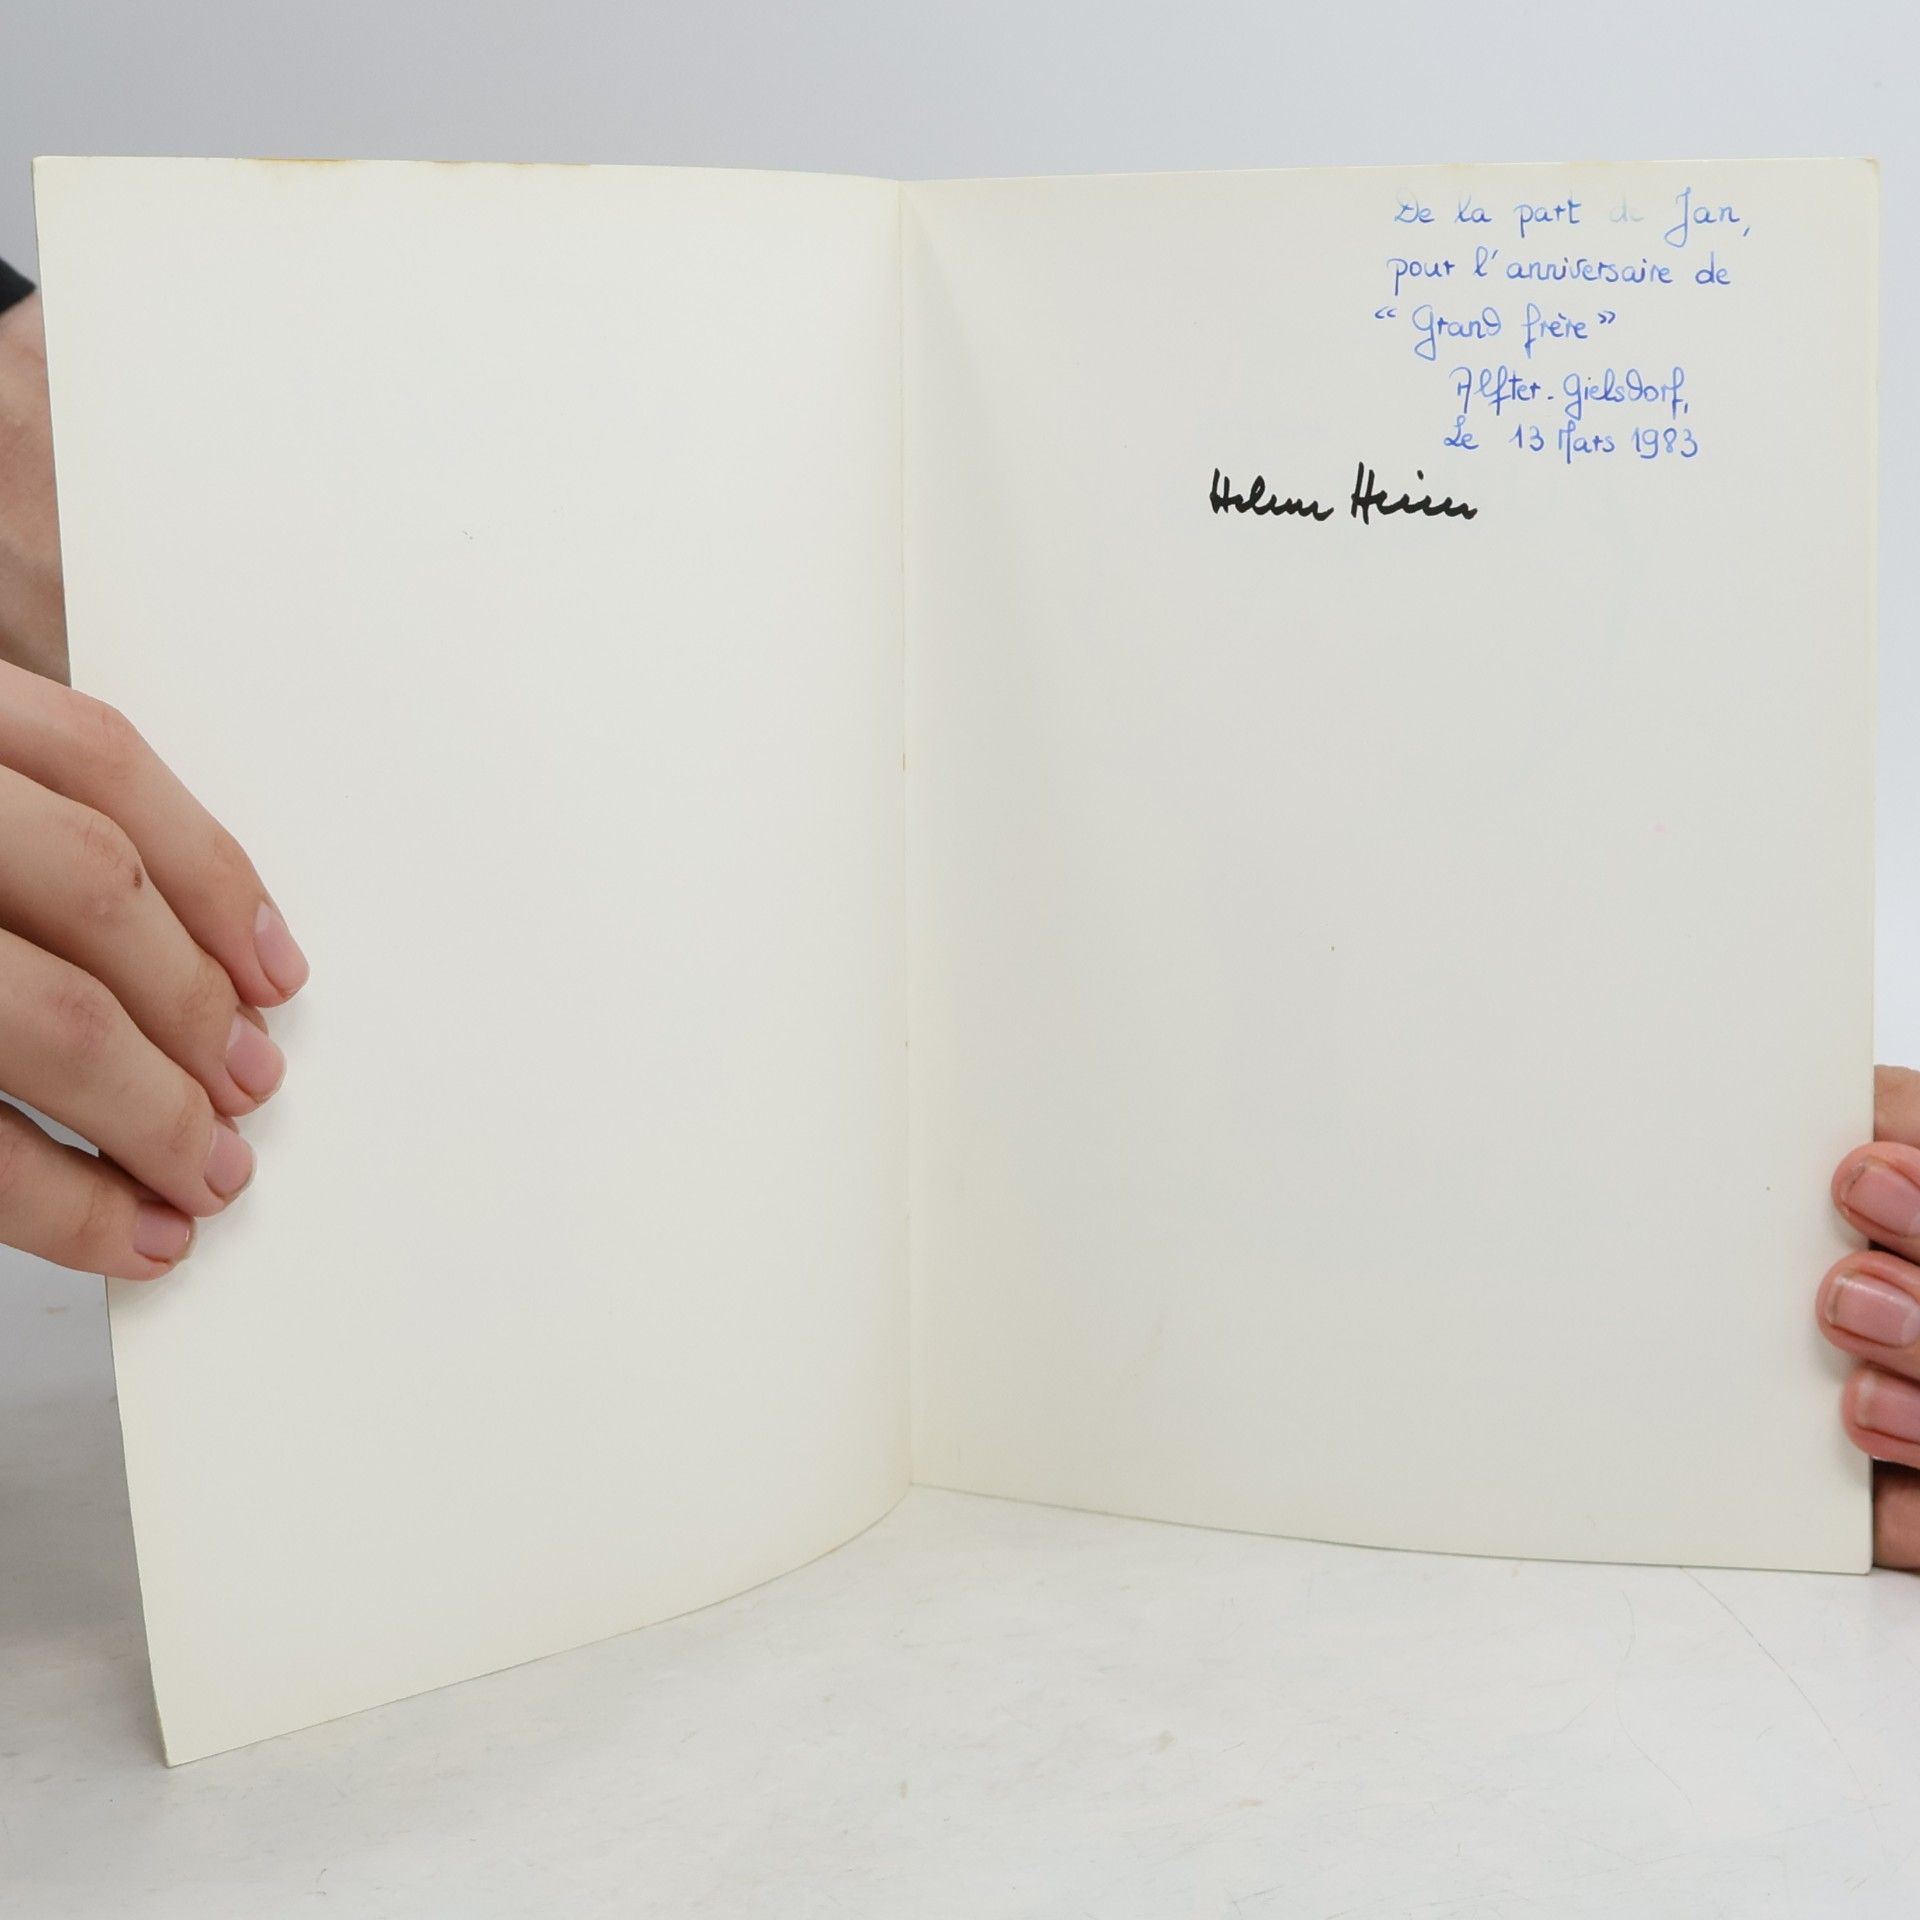 De la part de Jan,
pour l'anniversaire de
“Grand frère”
Alfter-Gielsdorf,
Le 13 Mars 1983
Helme Heine